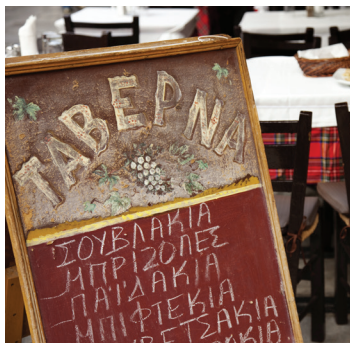 ΤΑΒΕΡΝΑ
ΣΟΥΒΛΑΚΙΑ
ΜΠΡΙΖΟΛΕΣ
ΠΑΪΔΑΚΙΑ
ΜΠΙΦΤΕΚΙΑ